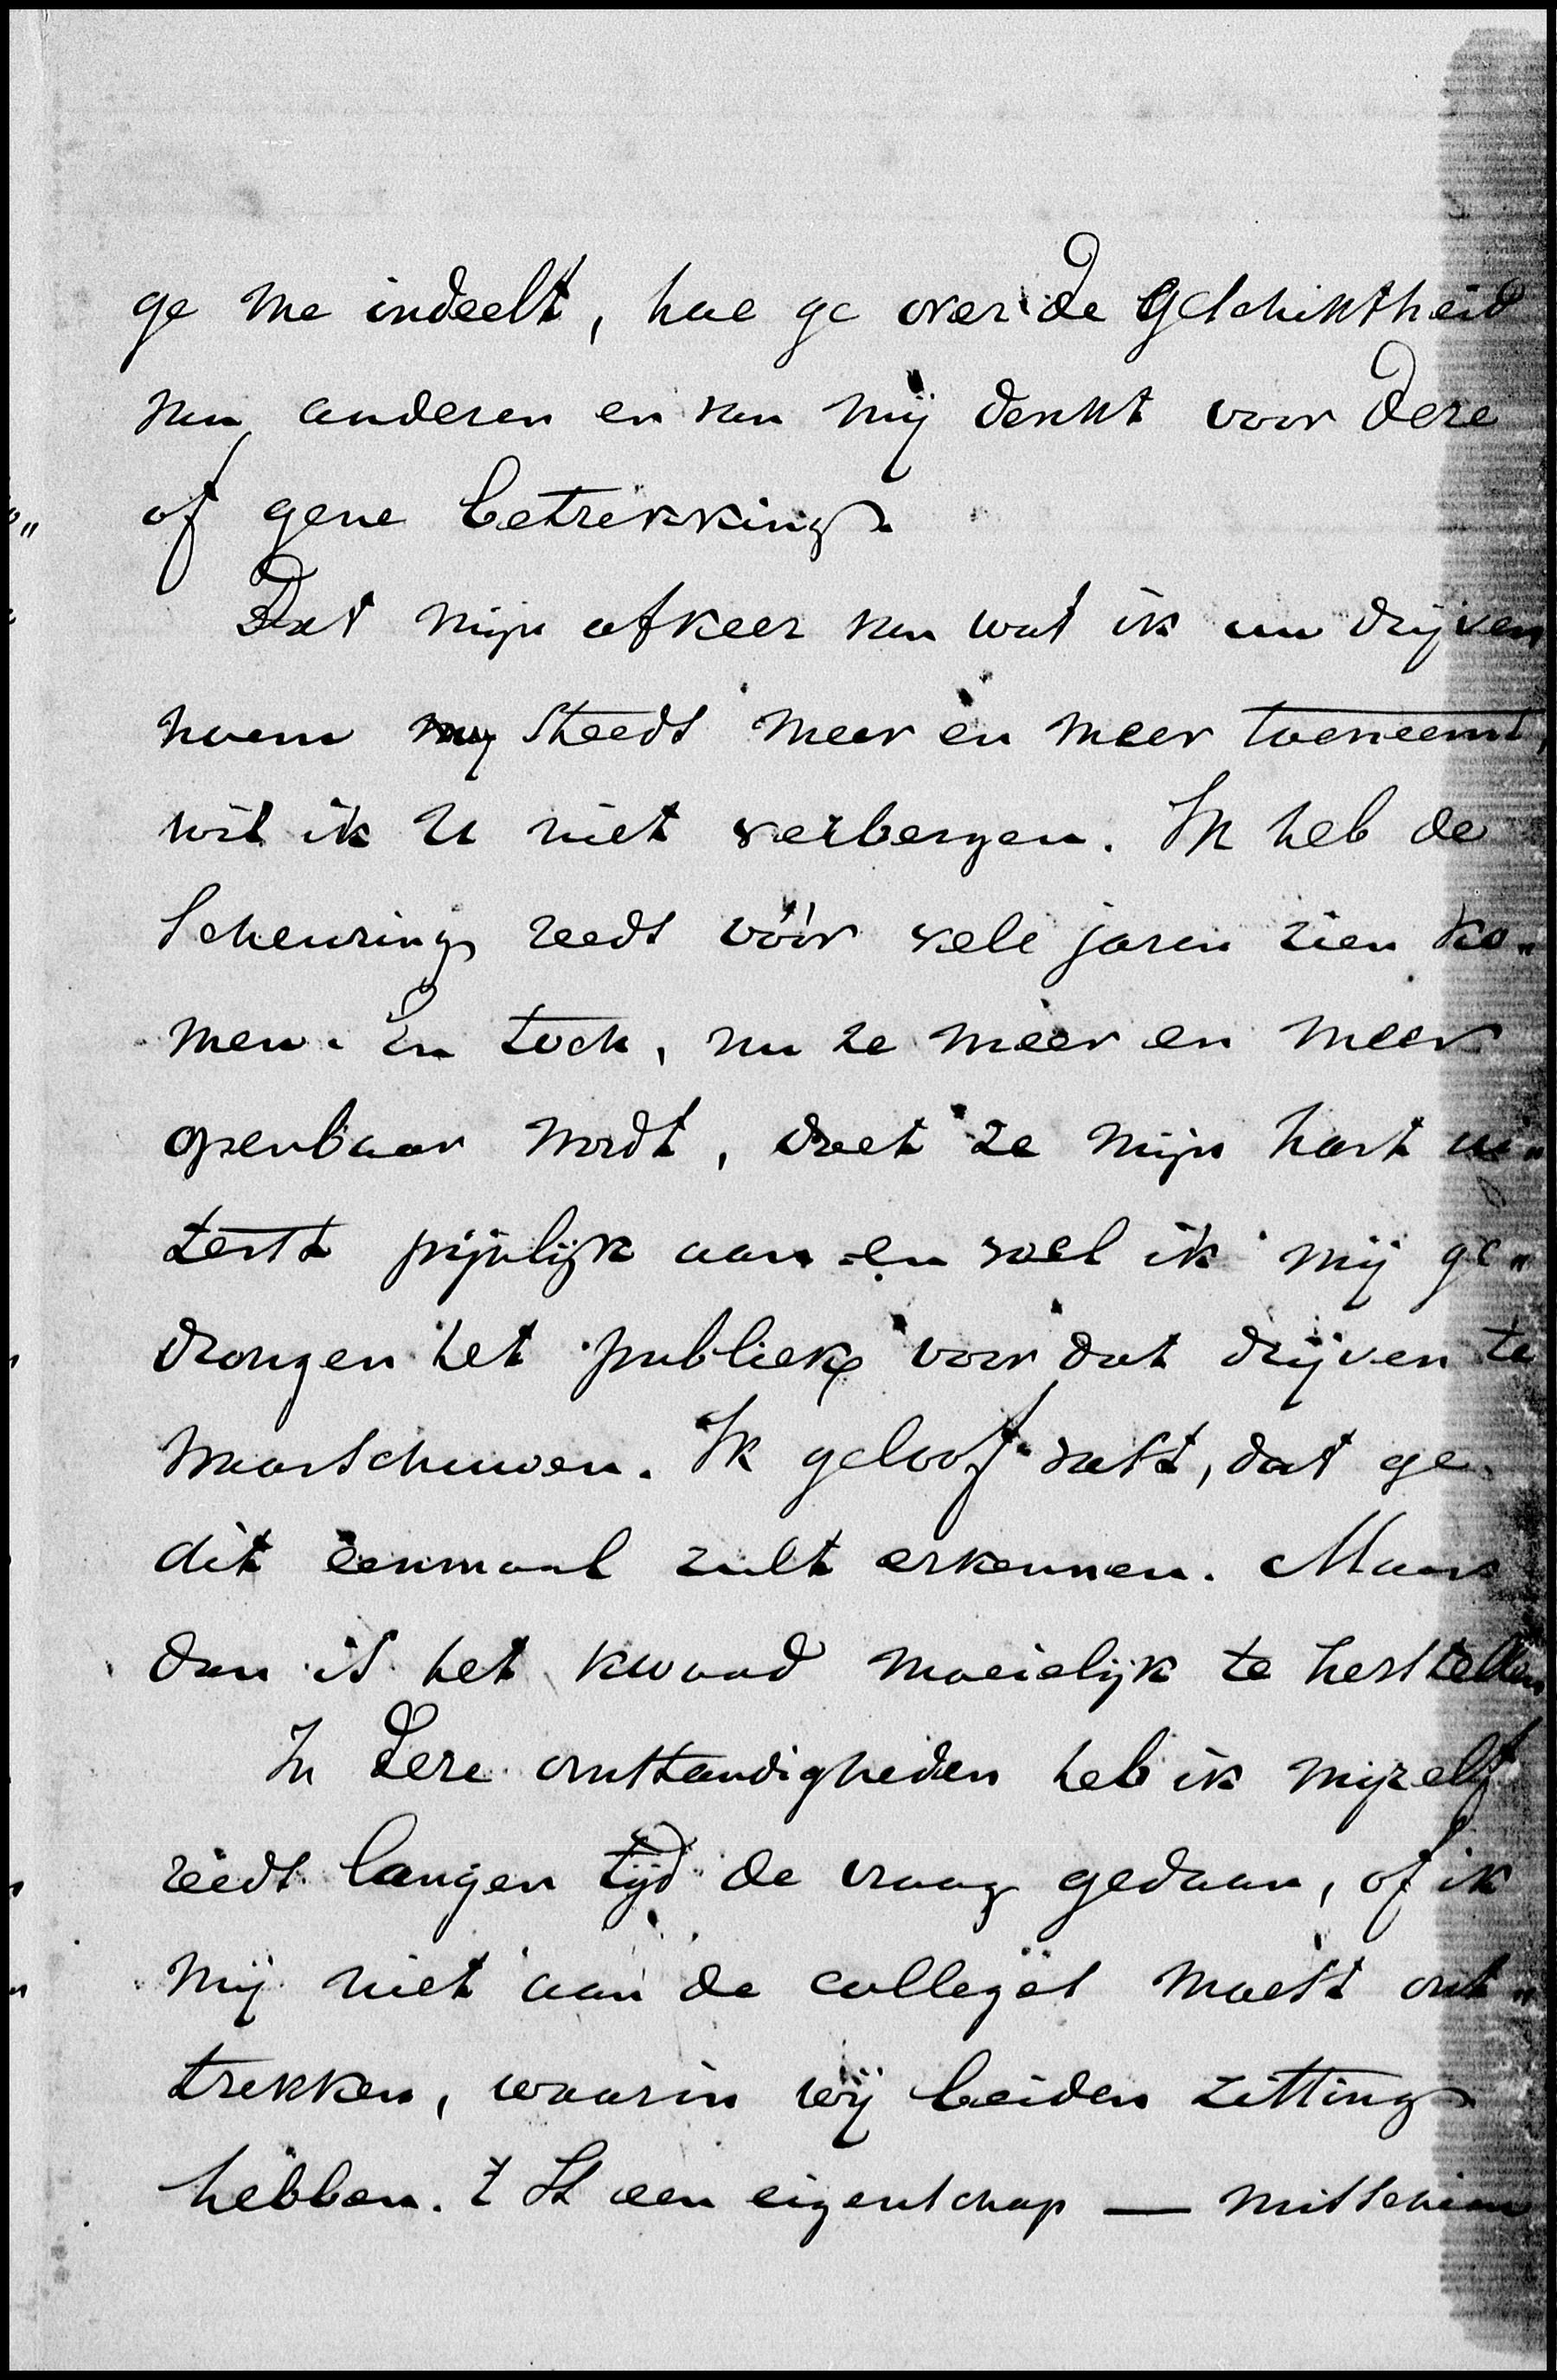 ge me indeelt, hoe ge over de geschiktheid
van anderen en van mij denkt voor deze
of gene betrekking.
Dat mijn afkeer van wat ik uw drijven
noem steeds meer en meer toeneemt,
wil ik U niet verbergen. Ik heb de
scheuring reeds vóór vele jaren zien ko„
men. En toch, nu ze meer en meer
openbaar wordt, doet ze mijn hart ui„
terst pijnlijk aan en voel ik mij ge„
drongen het publiek voor dat drijven te
waarschuwen. Ik geloof vast, dat ge
dit éénmaal zult erkennen. Maar
dan is het kwaad moeielijk te herstellen
In deze omstandigheden heb ik mijzelf
reeds langen tijd de vraag gedaan, of ik
mij niet aan de colleges moest ont„
trekken, waarin wij beiden zitting
hebben. 't Is een eigenschap — misschien